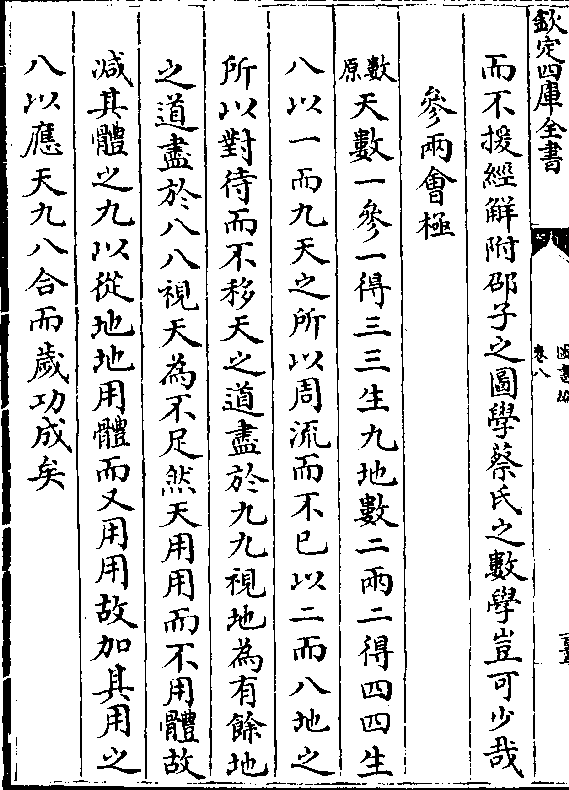 欽定四庫全書
卷八
而不援經觧附邵子之圖學蔡氏之數學豈可少哉
參兩會極
數原天數一參一得三三生九地數二兩二得四四生
八以一而九天之所以周流而不已以二而八地之
所以對待而不移天之道盡於九九視地為有餘地
之道盡於八八視天為不足然天用用而不用體故
減其體之九以從地地用體而又用用故加其用之
八以應天九八合而歲功成矣